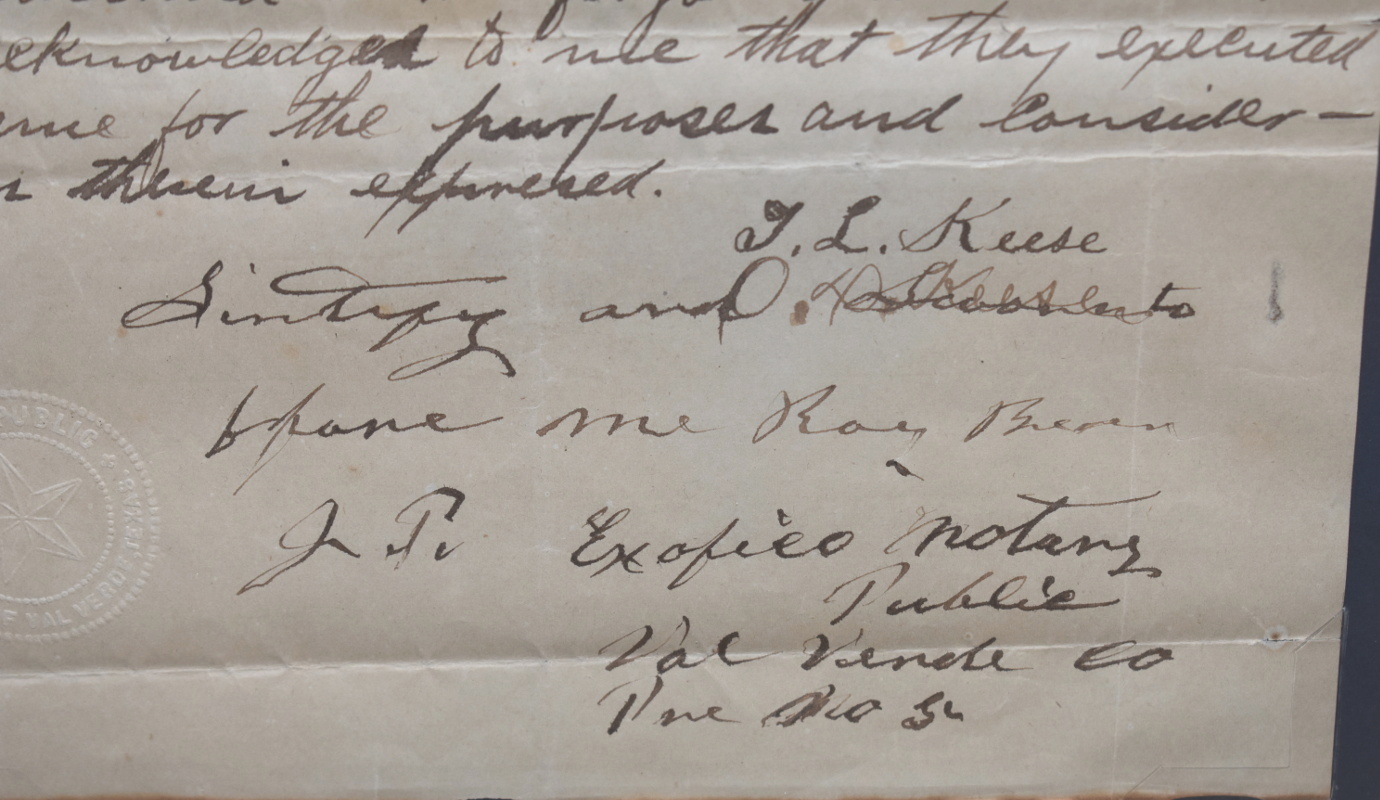 acknowledged to me that they executed
same for the purposes and consider-
therein expresed.
T. L. Keese
and
before me Roy Bean
J. P. Exofico notary
Public
Val Verde co
Pre No 5
PUBLIC
OF VAL VERDE